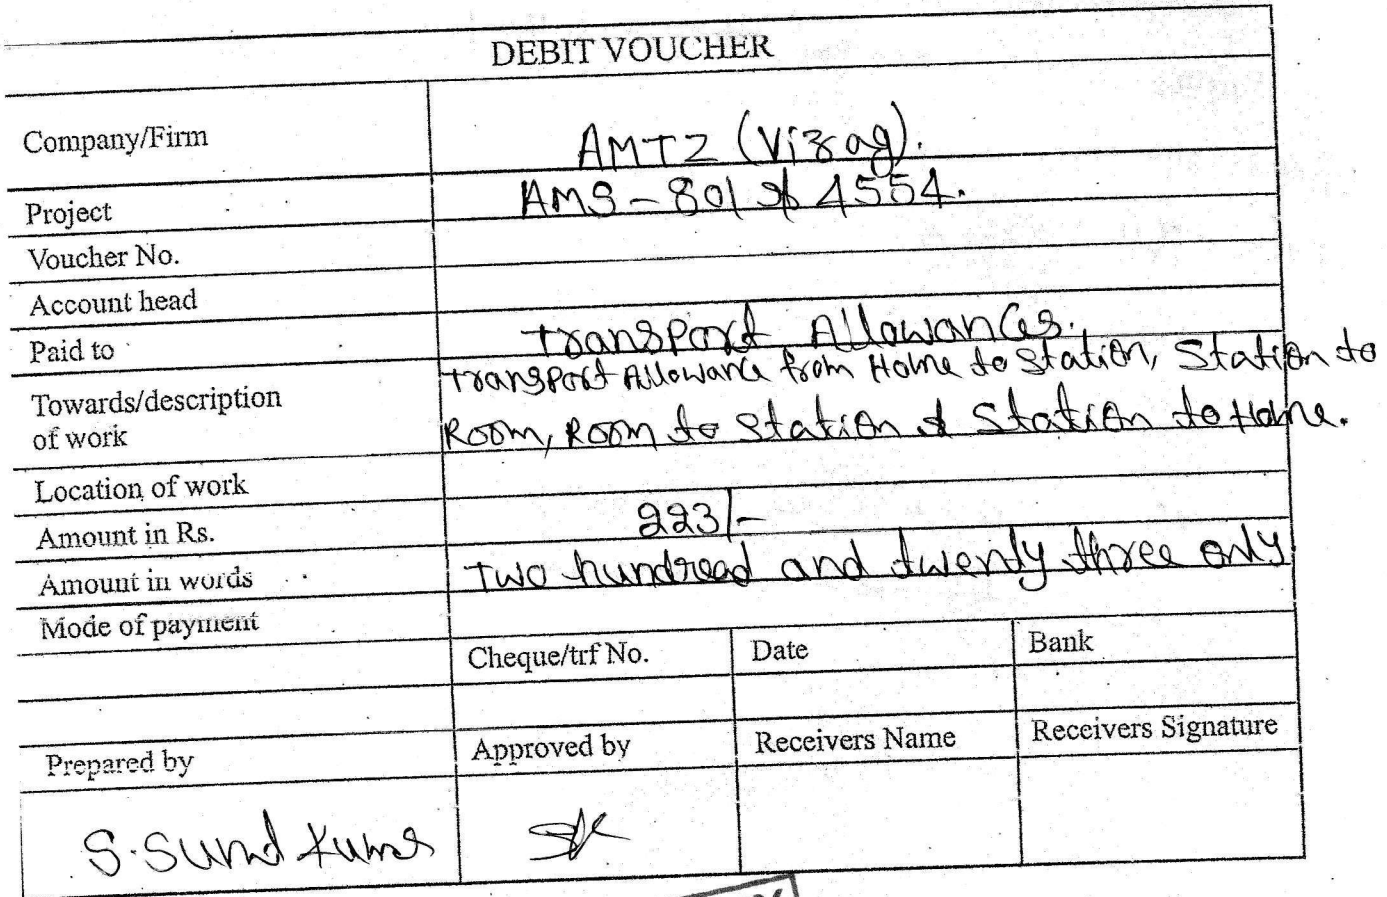 DEBIT VOUCHER
Company/Firm AMTZ (Vizag).
Project AMS-801 & 4554.
Voucher No.
Account head
Paid to Transport Allowances.
Towards/description Transport Allowance from Home to Station, Station to
of work Room, Room to Station & Station to Home.
Location of work
Amount in Rs. 223/-
Amount in words Two hundread and twenty three only
Mode of payment
Cheque/trf No. Date Bank
Prepared by Approved by Receivers Name Receivers Signature
S. Kumar